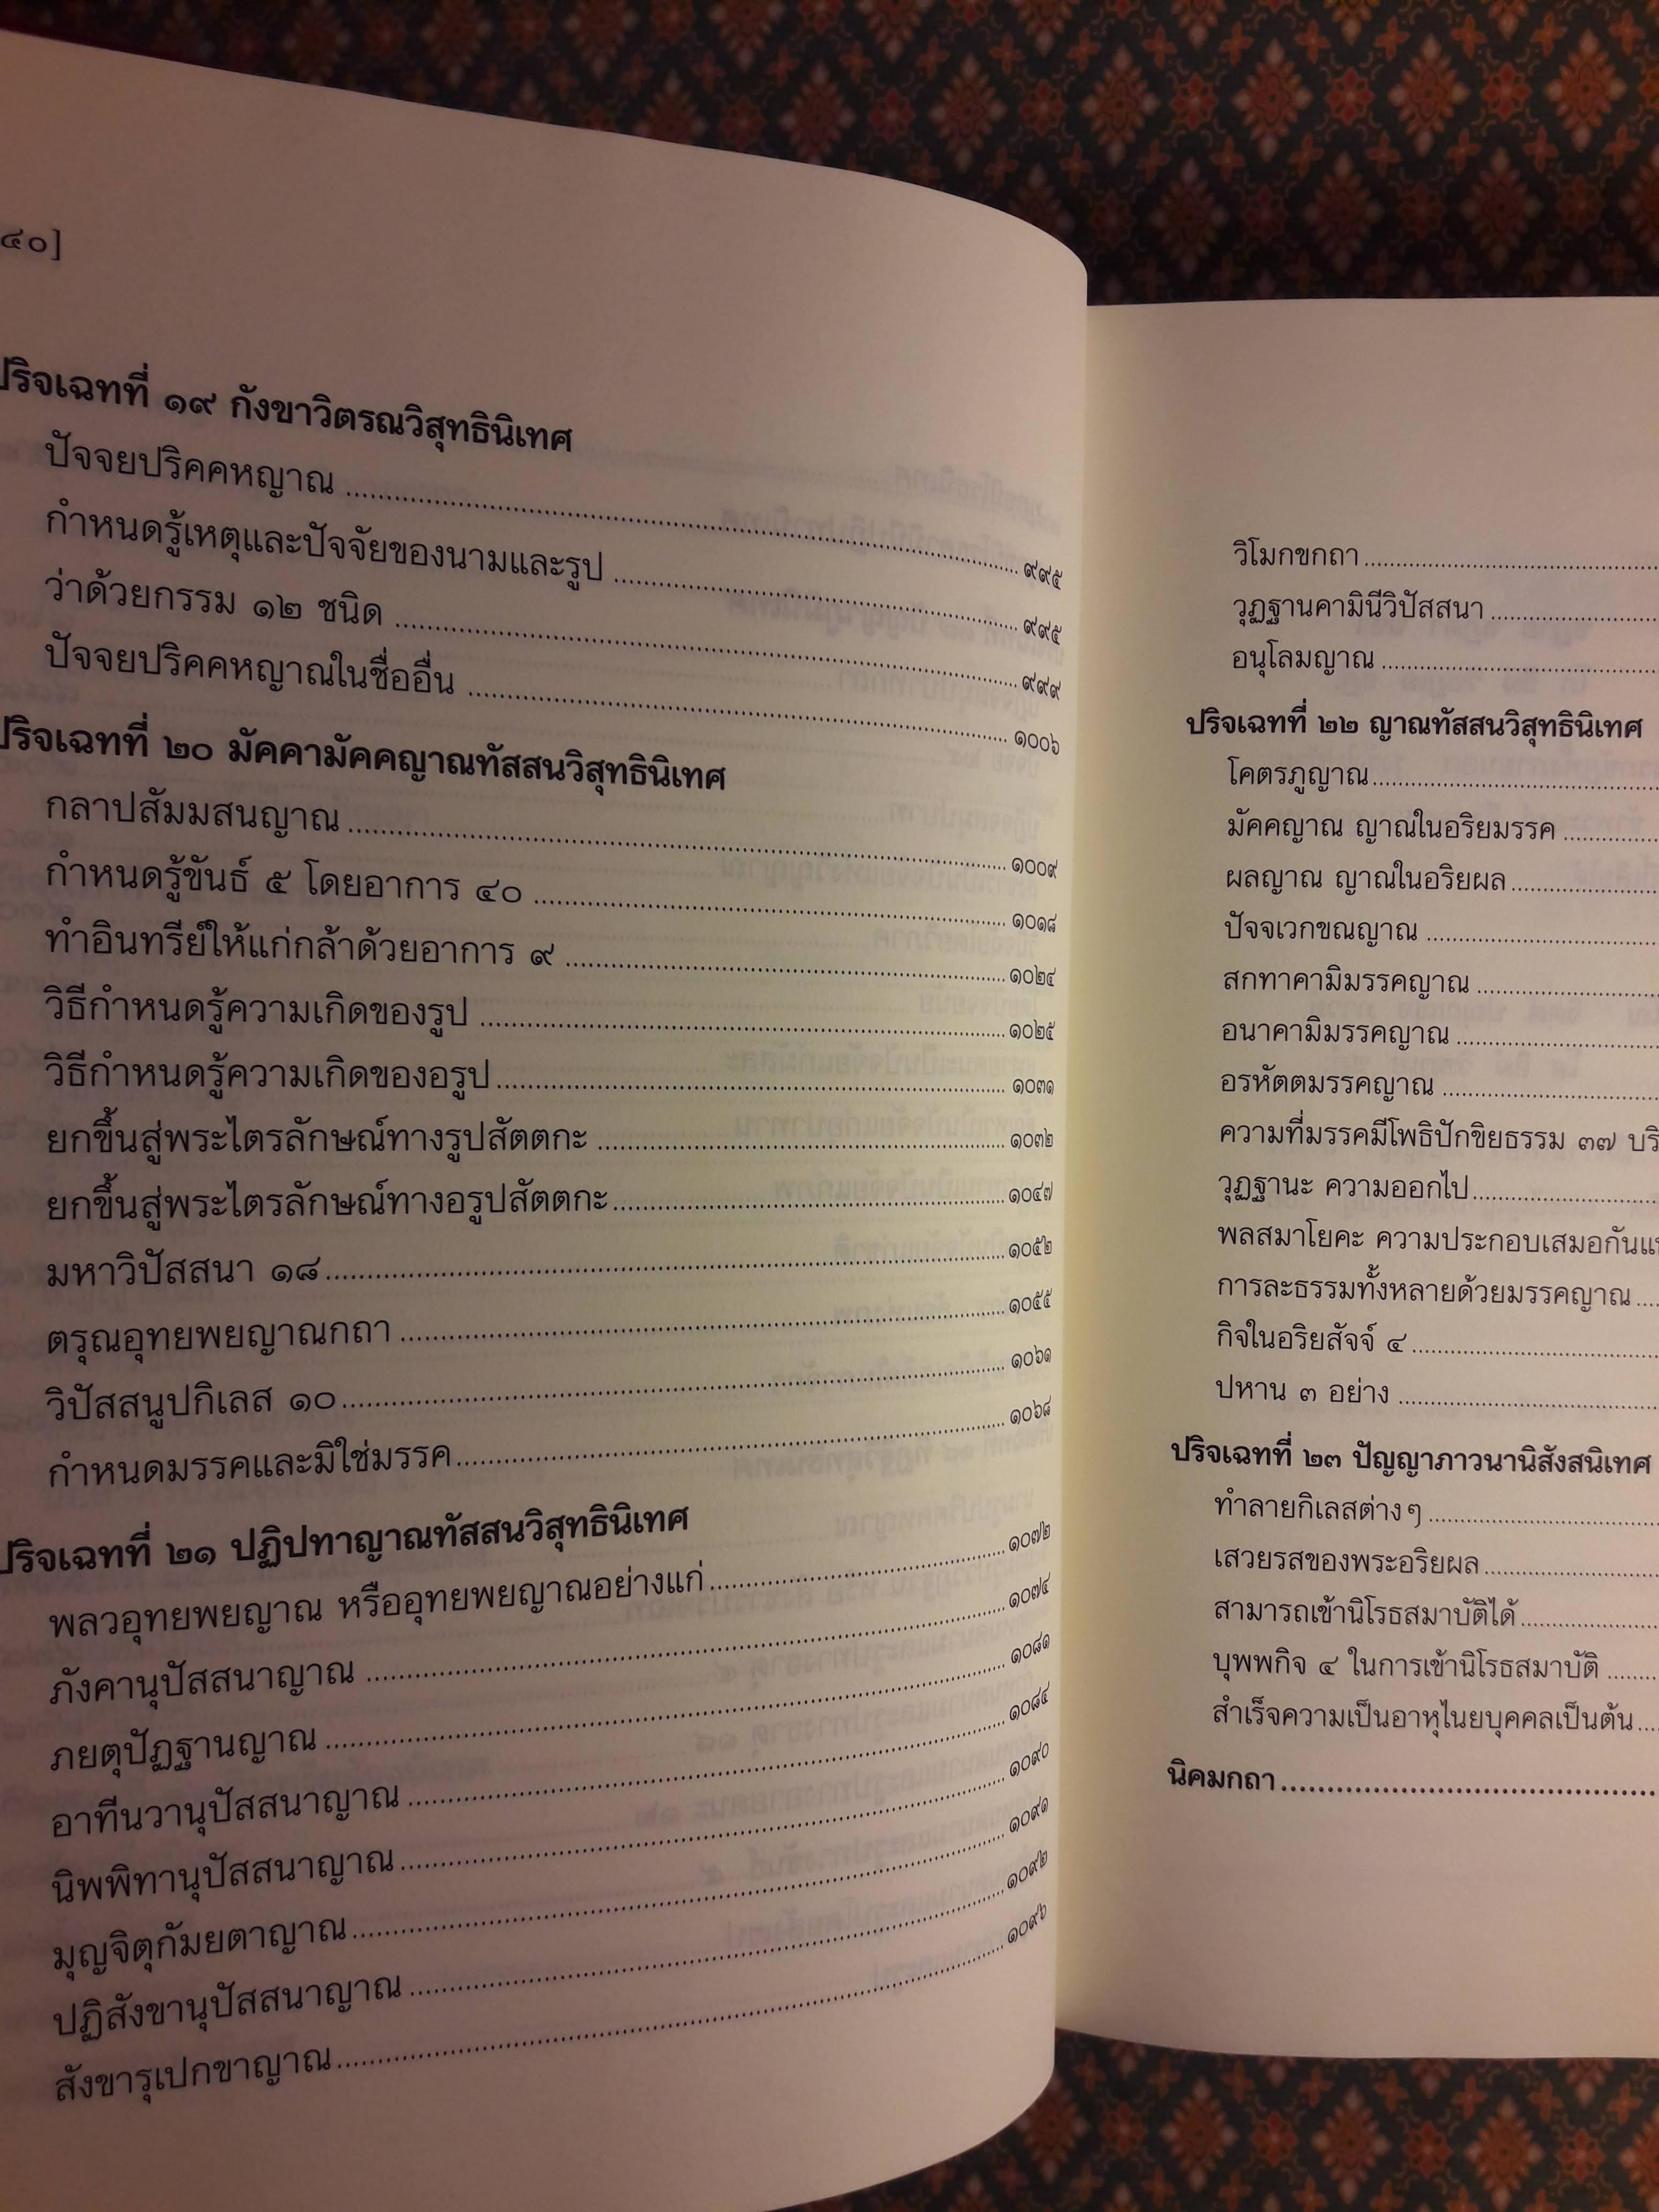 ๔๐]
ปริจเฉทที่ ๑๙ กังขาวิตรณวิสุทธินิเทศ
ปัจจยปริคคหญาณ ........ ๙๙๕
กำหนดรู้เหตุและปัจจัยของนามและรูป ........ ๙๙๕
ว่าด้วยกรรม ๑๒ ชนิด ........ ๙๙๙
ปัจจยปริคคหญาณในชื่ออื่น ........ ๑๐๐๖
ปริจเฉทที่ ๒๐ มัคคามัคคญาณทัสสนวิสุทธินิเทศ
กลาปสัมมสนญาณ ........ ๑๐๐๙
กำหนดรู้ขันธ์ ๕ โดยอาการ ๔๐ ........ ๑๐๑๘
ทำอินทรีย์ให้แก่กล้าด้วยอาการ ๙ ........ ๑๐๒๔
วิธีกำหนดรู้ความเกิดของรูป ........ ๑๐๒๕
วิธีกำหนดรู้ความเกิดของอรูป ........ ๑๐๓๑
ยกขึ้นสู่พระไตรลักษณ์ทางรูปสัตตกะ ........ ๑๐๓๒
ยกขึ้นสู่พระไตรลักษณ์ทางอรูปสัตตกะ ........ ๑๐๔๗
มหาวิปัสสนา ๑๘ ........ ๑๐๕๒
ตรุณอุทยพยญาณกถา ........ ๑๐๕๕
วิปัสสนูปกิเลส ๑๐ ........ ๑๐๖๑
กำหนดมรรคและมิใช่มรรค ........ ๑๐๖๘
ปริจเฉทที่ ๒๑ ปฏิปทาญาณทัสสนวิสุทธินิเทศ
พลวอุทยพยญาณ หรืออุทยพยญาณอย่างแก่ ........ ๑๐๗๒
ภังคานุปัสสนาญาณ ........ ๑๐๗๔
ภยตุปัฏฐานญาณ ........ ๑๐๘๑
อาทีนวานุปัสสนาญาณ ........ ๑๐๘๔
นิพพิทานุปัสสนาญาณ ........ ๑๐๙๐
มุญจิตุกัมยตาญาณ ........ ๑๐๙๑
ปฏิสังขานุปัสสนาญาณ ........ ๑๐๙๒
สังขารุเปกขาญาณ ........ ๑๐๙๖
วิโมกขกถา ........
วุฏฐานคามินีวิปัสสนา ........
อนุโลมญาณ ........
ปริจเฉทที่ ๒๒ ญาณทัสสนวิสุทธินิเทศ
โคตรภูญาณ ........
มัคคญาณ ญาณในอริยมรรค ........
ผลญาณ ญาณในอริยผล ........
ปัจจเวกขณญาณ ........
สกทาคามิมรรคญาณ ........
อนาคามิมรรคญาณ ........
อรหัตตมรรคญาณ ........
ความที่มรรคมีโพธิปักขิยธรรม ๓๗ บริ
วุฏฐานะ ความออกไป ........
พลสมาโยคะ ความประกอบเสมอกัน
การละธรรมทั้งหลายด้วยมรรคญาณ ....
กิจในอริยสัจจ์ ๔ ........
ปหาน ๓ อย่าง ........
ปริจเฉทที่ ๒๓ ปัญญาภาวนานิสังสนิเทศ
ทำลายกิเลสต่างๆ ........
เสวยรสของพระอริยผล ........
สามารถเข้านิโรธสมาบัติได้ ........
บุพพกิจ ๔ ในการเข้านิโรธสมาบัติ ........
สำเร็จความเป็นอาหุไนยบุคคลเป็นต้น ....
นิคมกถา ........